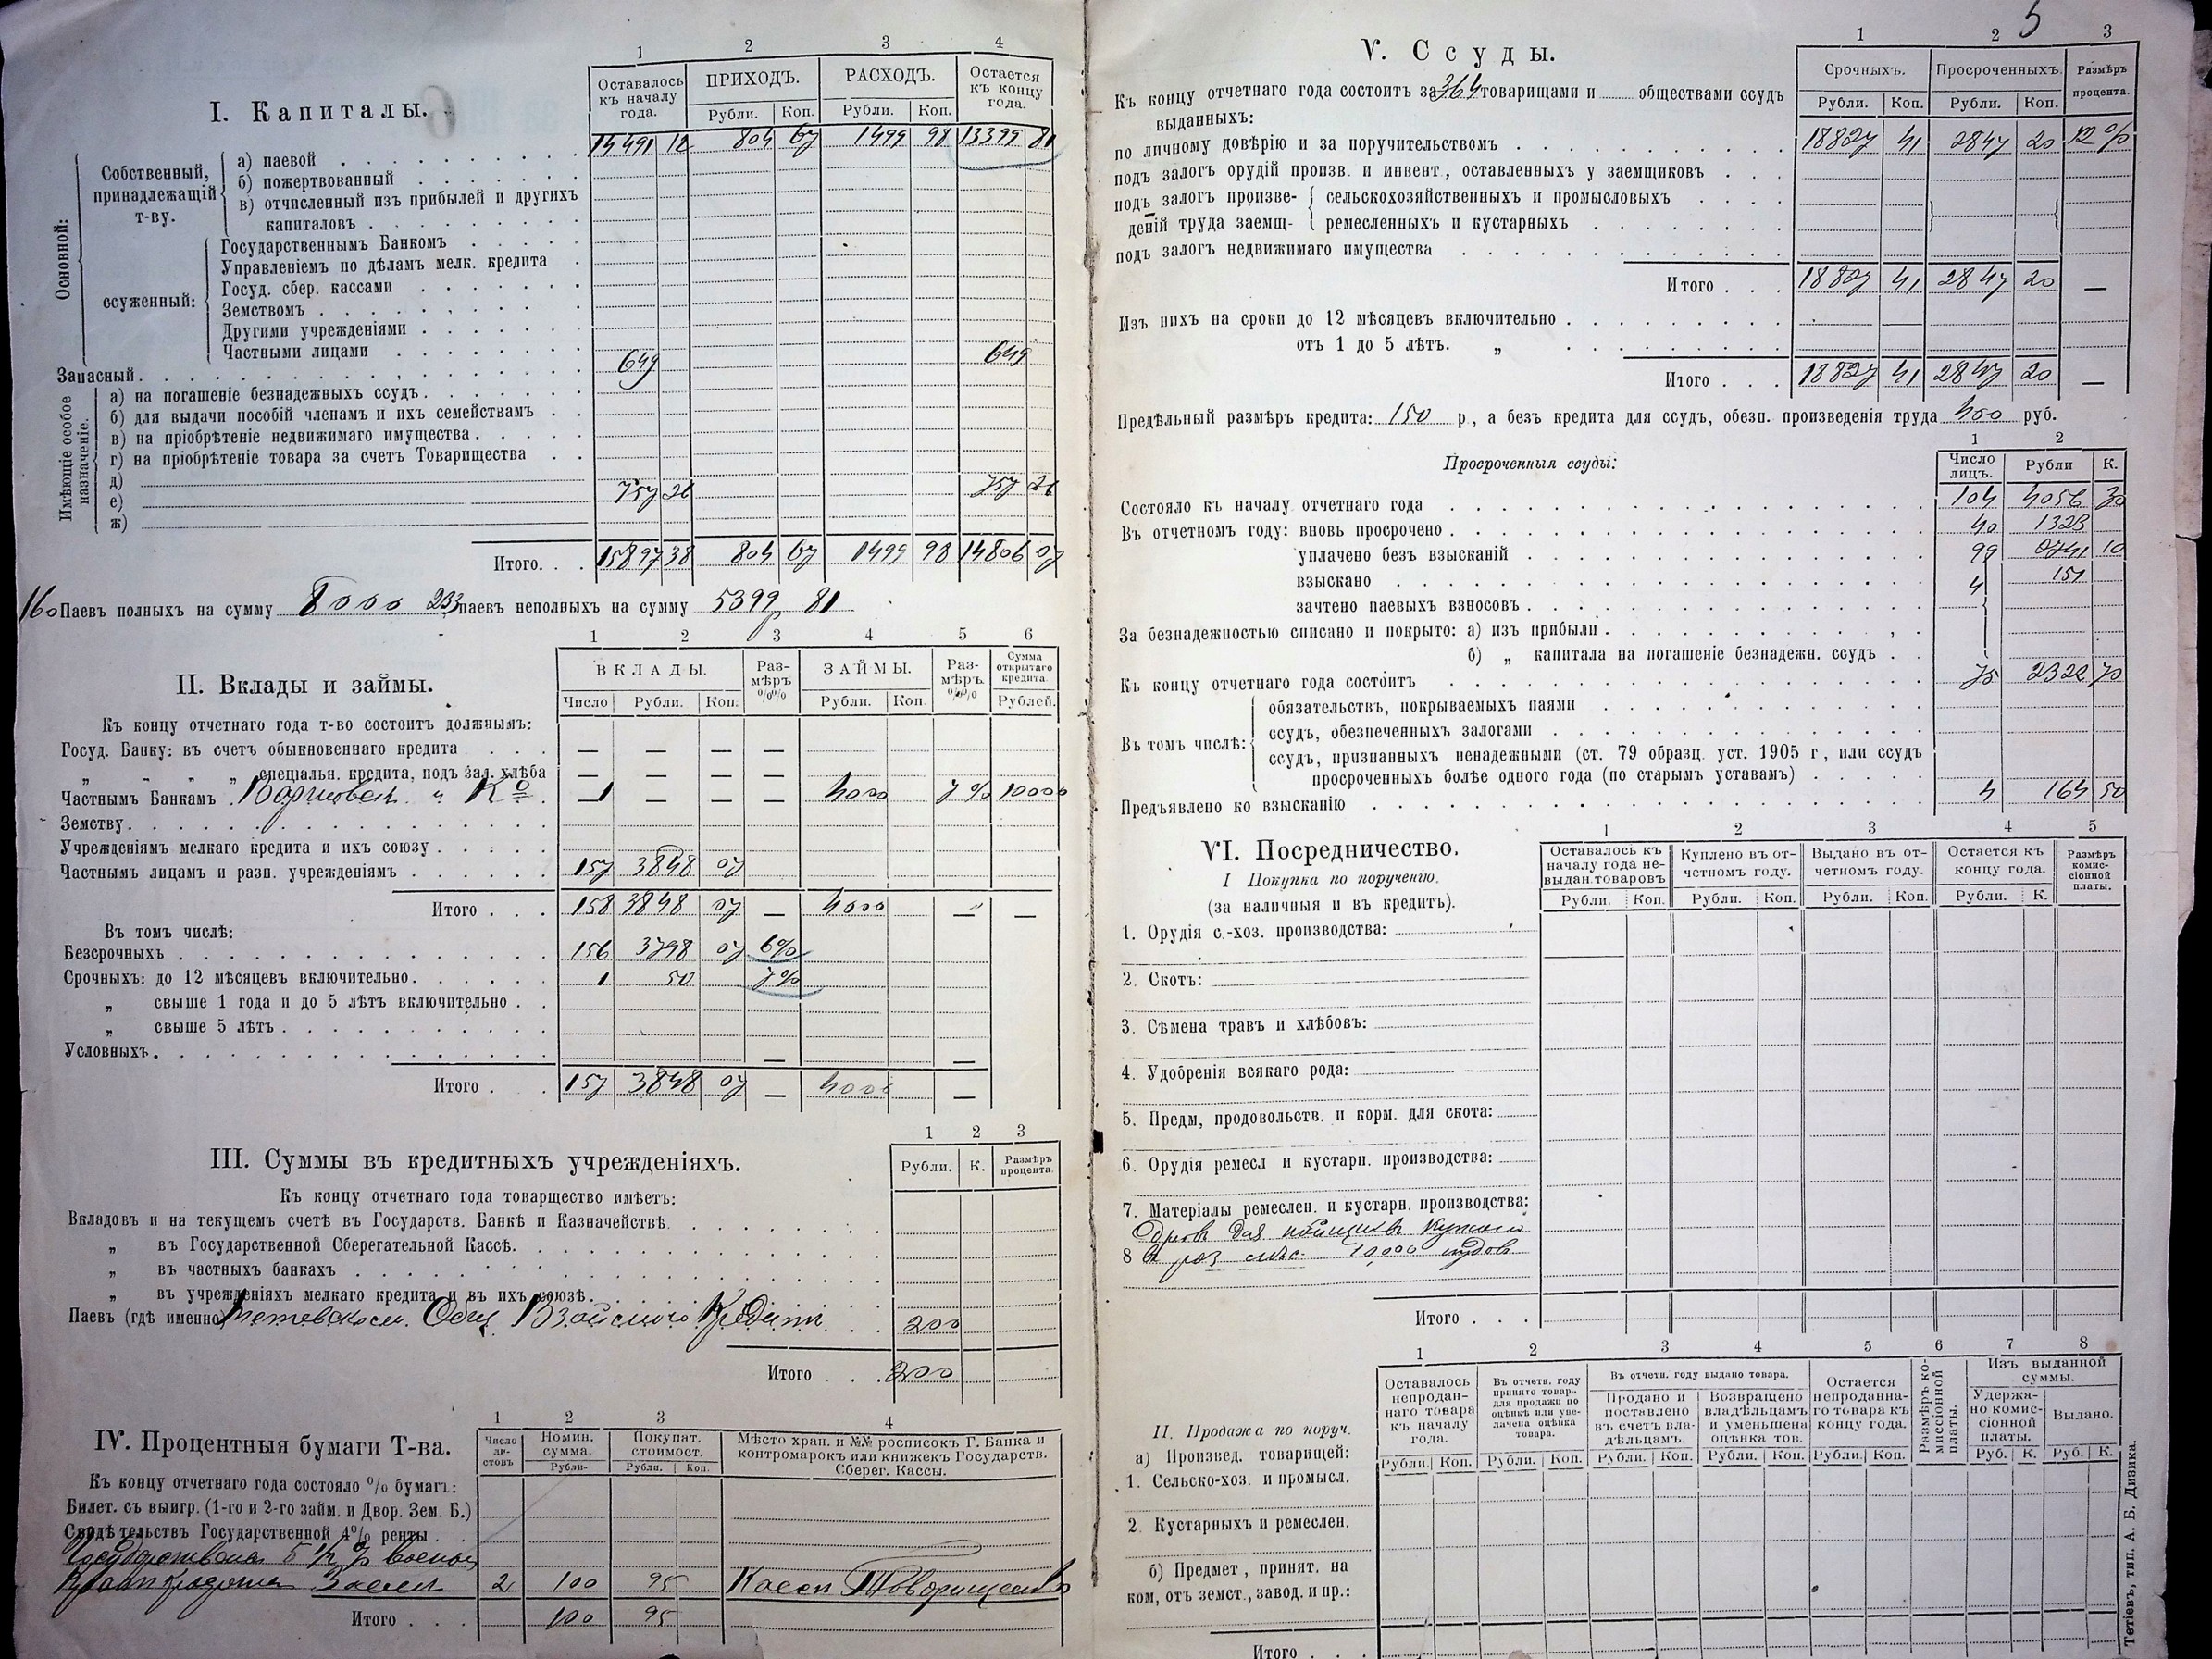 5
I. Капиталы.
1 2 3 4
Оставалось къ началу года. ПРИХОДЪ. РАСХОДЪ. Остается къ концу года.
Рубли. Коп. Рубли. Коп.
Основной:
Собственный, принадлежащій т-ву.
а) паевой 14491 12 804 67 1499 98 13399 81
б) пожертвованный
в) отчисленный изъ прибылей и другихъ
капиталовъ
осуженный:
Государственнымъ Банкомъ
Управленіемъ по дѣламъ мелк. кредита
Госуд. сбер. кассами
Земствомъ
Другими учрежденіями
Частными лицами
Запасный 649 649
Имѣющіе особое назначеніе.
а) на погашеніе безнадежныхъ ссудъ
б) для выдачи пособій членамъ и ихъ семействамъ
в) на пріобрѣтеніе недвижимаго имущества
г) на пріобрѣтеніе товара за счетъ Товарищества
д)
е) 757 26 757 26
ж)
Итого. 15897 38 804 67 1499 98 14806 07
160 Паевъ полныхъ на сумму 8000 233 паевъ неполныхъ на сумму 5399 р 81
II. Вклады и займы.
1 2 3 4 5 6
ВКЛАДЫ. Раз-мѣръ %% ЗАЙМЫ. Раз-мѣръ %% Сумма открытаго кредита.
Число Рубли. Коп. Рубли. Коп. Рублей.
Къ концу отчетнаго года т-во состоитъ должнымъ:
Госуд. Банку: въ счетъ обыкновеннаго кредита — — — —
„ „ „ „ спеціальн. кредита, подъ зал. хлѣба — — — —
Частнымъ Банкамъ и Ко 1 — — — 4000 7% 10000
Земству.
Учрежденіямъ мелкаго кредита и ихъ союзу
Частнымъ лицамъ и разн. учрежденіямъ 157 3848 07
Итого 158 3848 07 — 4000 — —
Въ томъ числѣ:
Безсрочныхъ 156 3798 07 6%
Срочныхъ: до 12 мѣсяцевъ включительно 1 50 7%
„ свыше 1 года и до 5 лѣтъ включительно
„ свыше 5 лѣтъ
Условныхъ. — —
Итого 157 3848 07 — 4000 —
III. Суммы въ кредитныхъ учрежденіяхъ.
1 2 3
Рубли. К. Размѣръ процента.
Къ концу отчетнаго года товарщество имѣетъ:
Вкладовъ и на текущемъ счетѣ въ Государств. Банкѣ и Казначействѣ
„ въ Государственной Сберегательной Кассѣ.
„ въ частныхъ банкахъ
„ въ учрежденіяхъ мелкаго кредита и въ ихъ союзѣ.
Паевъ (гдѣ именно) Общ Взаимнаго Кредита 200
Итого 200
IV. Процентныя бумаги Т-ва.
1 2 3 4
Число ли-стовъ Номин. сумма. Покупат. стоимост. Мѣсто хран. и №№ росписокъ Г. Банка и контромарокъ или книжекъ Государств. Сберег. Кассы.
Рубли- Рубли. Коп.
Къ концу отчетнаго года состояло % бумагъ:
Билет. съ выигр. (1-го и 2-го займ. и Двор. Зем. Б.)
Свидѣтельствъ Государственной 4% ренты
5 1/2 % военн
Заемъ 2 100 95 Касса Товарищества
Итого 100 95
V. Ссуды.
1 2 3
Срочныхъ. Просроченныхъ. Размѣръ процента.
Рубли. Коп. Рубли. Коп.
Къ концу отчетнаго года состоитъ за 364 товарищами и обществами ссудъ
выданныхъ:
по личному довѣрію и за поручительствомъ 18827 41 2847 20 12%
подъ залогъ орудій произв. и инвент., оставленныхъ у заемщиковъ
подъ залогъ произве- сельскохозяйственныхъ и промысловыхъ
деній труда заемщ- ремесленныхъ и кустарныхъ
подъ залогъ недвижимаго имущества
Итого 18827 41 2847 20 —
Изъ нихъ на сроки до 12 мѣсяцевъ включительно
отъ 1 до 5 лѣтъ. „
Итого 18827 41 2847 20 —
Предѣльный размѣръ кредита: 150 р, а безъ кредита для ссудъ, обезп. произведенія труда 400 руб.
Просроченныя ссуды:
1 2
Число лицъ. Рубли К.
Состояло къ началу отчетнаго года 104 4056 30
Въ отчетномъ году: вновь просрочено 40 1323
уплачено безъ взысканій 99 10
взыскано 4 151
зачтено паевыхъ взносовъ
За безнадежностью списано и покрыто: а) изъ прибыли
б) „ капитала на погашеніе безнадежн. ссудъ
Къ концу отчетнаго года состоитъ 75 2322 70
Въ томъ числѣ:
обязательствъ, покрываемыхъ паями
ссудъ, обезпеченныхъ залогами
ссудъ, признанныхъ ненадежными (ст. 79 образц. уст. 1905 г, или ссудъ
просроченныхъ болѣе одного года (по старымъ уставамъ)
Предъявлено ко взысканію 4 164 50
VI. Посредничество.
1 2 3 4 5
Оставалось къ началу года не-выдан.товаровъ Куплено въ от-четномъ году. Выдано въ от-четномъ году. Остается къ концу года. Размѣръ комис-сіонной платы.
Рубли. Коп. Рубли. Коп. Рубли. Коп. Рубли. К.
I Покупка по порученію.
(за наличныя и въ кредитъ).
1. Орудія с.-хоз. производства:
2. Скотъ:
3. Сѣмена травъ и хлѣбовъ:
4. Удобренія всякаго рода:
5. Предм, продовольств. и корм. для скота:
6. Орудія ремесл и кустарн. производства:
7. Матеріалы ремеслен. и кустарн. производства:
Дровъ для куплено
8 въ раз 10,000 пудовъ
Итого
1 2 3 4 5 6 7 8
Оставалось непродан-наго товара къ началу года. Въ отчетн. году принято товар. для продажи по оцѣнкѣ или уве-лачена оцѣнка товара. Въ отчетн. году выдано товара. Остается непроданна-го товара къ концу года. Размѣръ ко-миссіонной платы. Изъ выданной суммы.
Продано и поставлено въ счетъ вла-дѣльцамъ. Возвращено владѣльцамъ и уменьшена оцѣнка тов. Удержа-но комис-сіонной платы. Выдано.
Рубли. Коп. Рубли. Коп. Рубли. Коп. Рубли. Коп. Рубли. Коп. Руб. К. Руб. К.
II. Продажа по поруч.
а) Произвед. товарищей:
1. Сельско-хоз. и промысл.
2. Кустарныхъ и ремеслен.
б) Предмет, принят. на
ком, отъ земст., завод. и пр.:
Итого
Тетіевъ, тип. А. Б. Дизика.